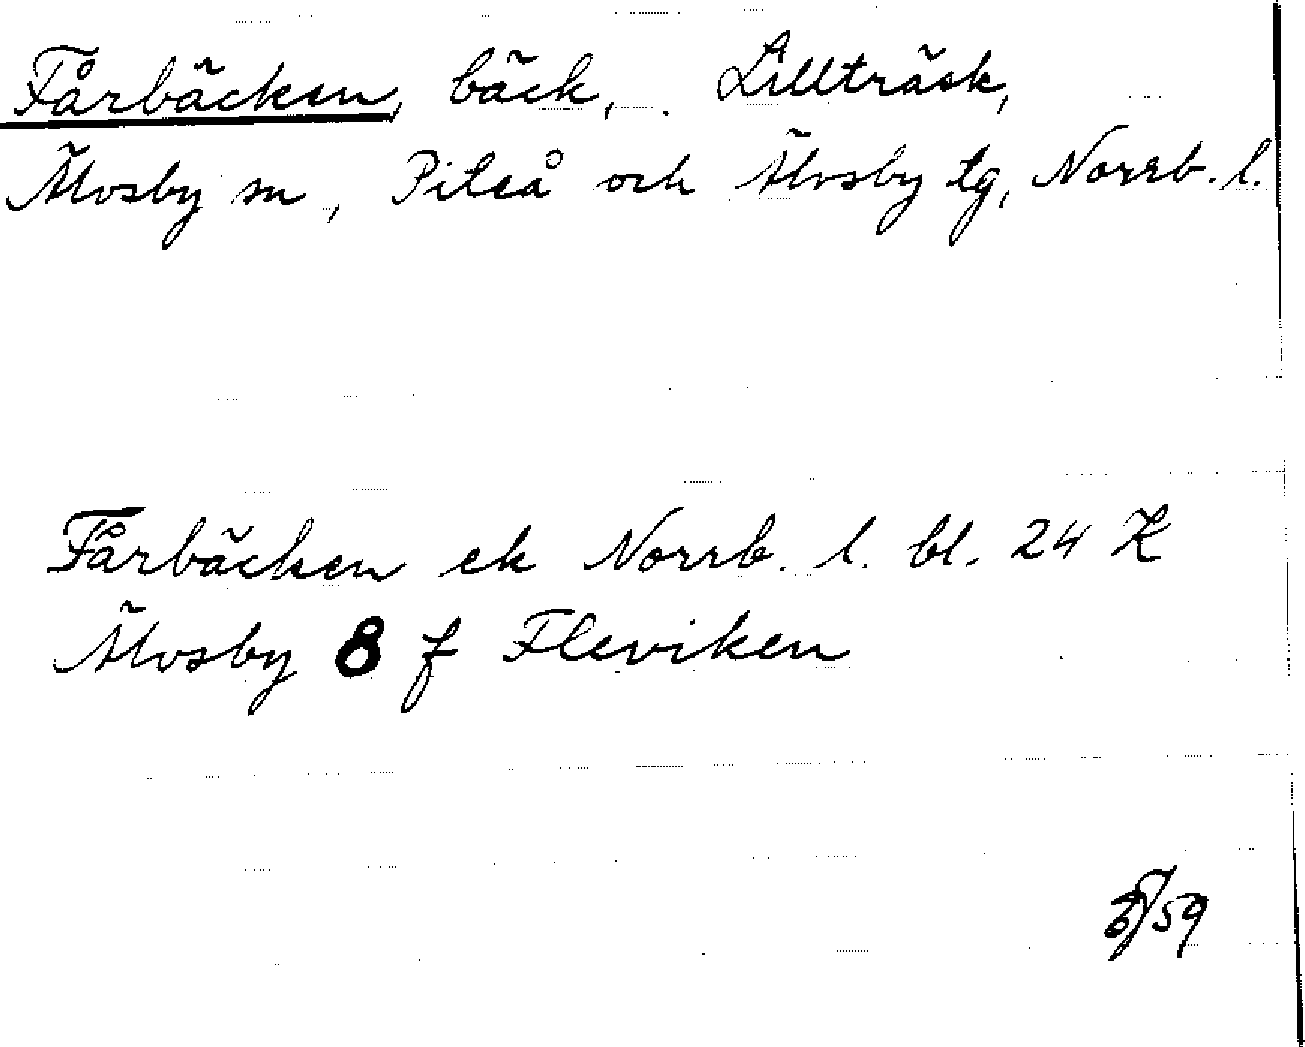 Fårbäcken, bäck, Lillträsk,
Älvsby sn, Piteå och Älvsby tg, Norrb. l.
Fårbäcken ek Norrb. l. bl. 24 K
Älvsby 8 f Fleviken
/59